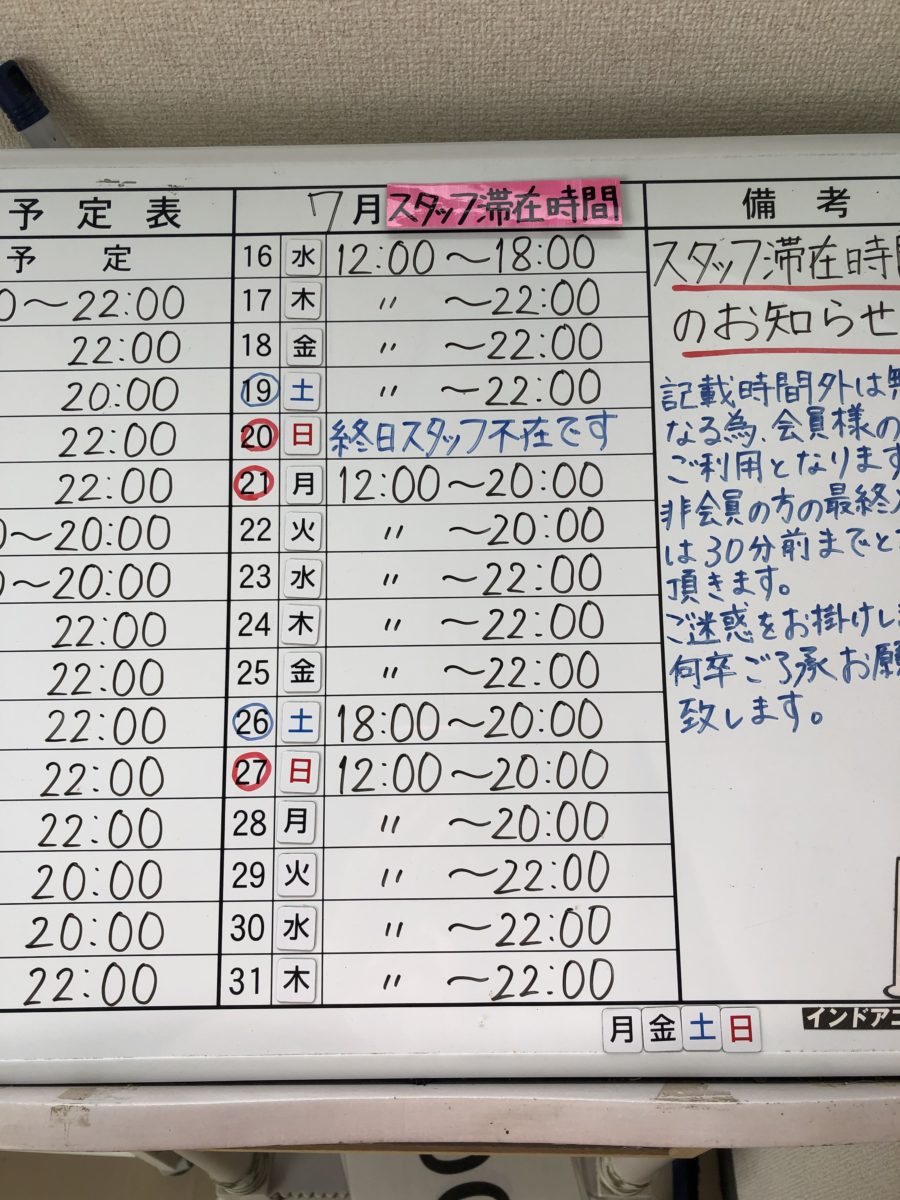 予定表
7月スタッフ滞在時間
備考
予定
0～22:00
22:00
20:00
22:00
22:00
0～20:00
0～20:00
22:00
22:00
22:00
22:00
22:00
20:00
20:00
22:00
16 水 12:00～18:00
17 木 〃 ～22:00
18 金 〃 ～22:00
19 土 〃 ～22:00
20 日 終日スタッフ不在です
21 月 12:00～20:00
22 火 〃 ～20:00
23 水 〃 ～22:00
24 木 〃 ～22:00
25 金 〃 ～22:00
26 土 18:00～20:00
27 日 12:00～20:00
28 月 〃 ～20:00
29 火 〃 ～22:00
30 水 〃 ～22:00
31 木 〃 ～22:00
スタッフ滞在時
のお知らせ
記載時間外は無
なる為、会員様の
ご利用となります
非会員の方の最終
は30分前までと
頂きます。
ご迷惑をお掛けし
何卒ご了承お願
致します。
月 金 土 日
インドア